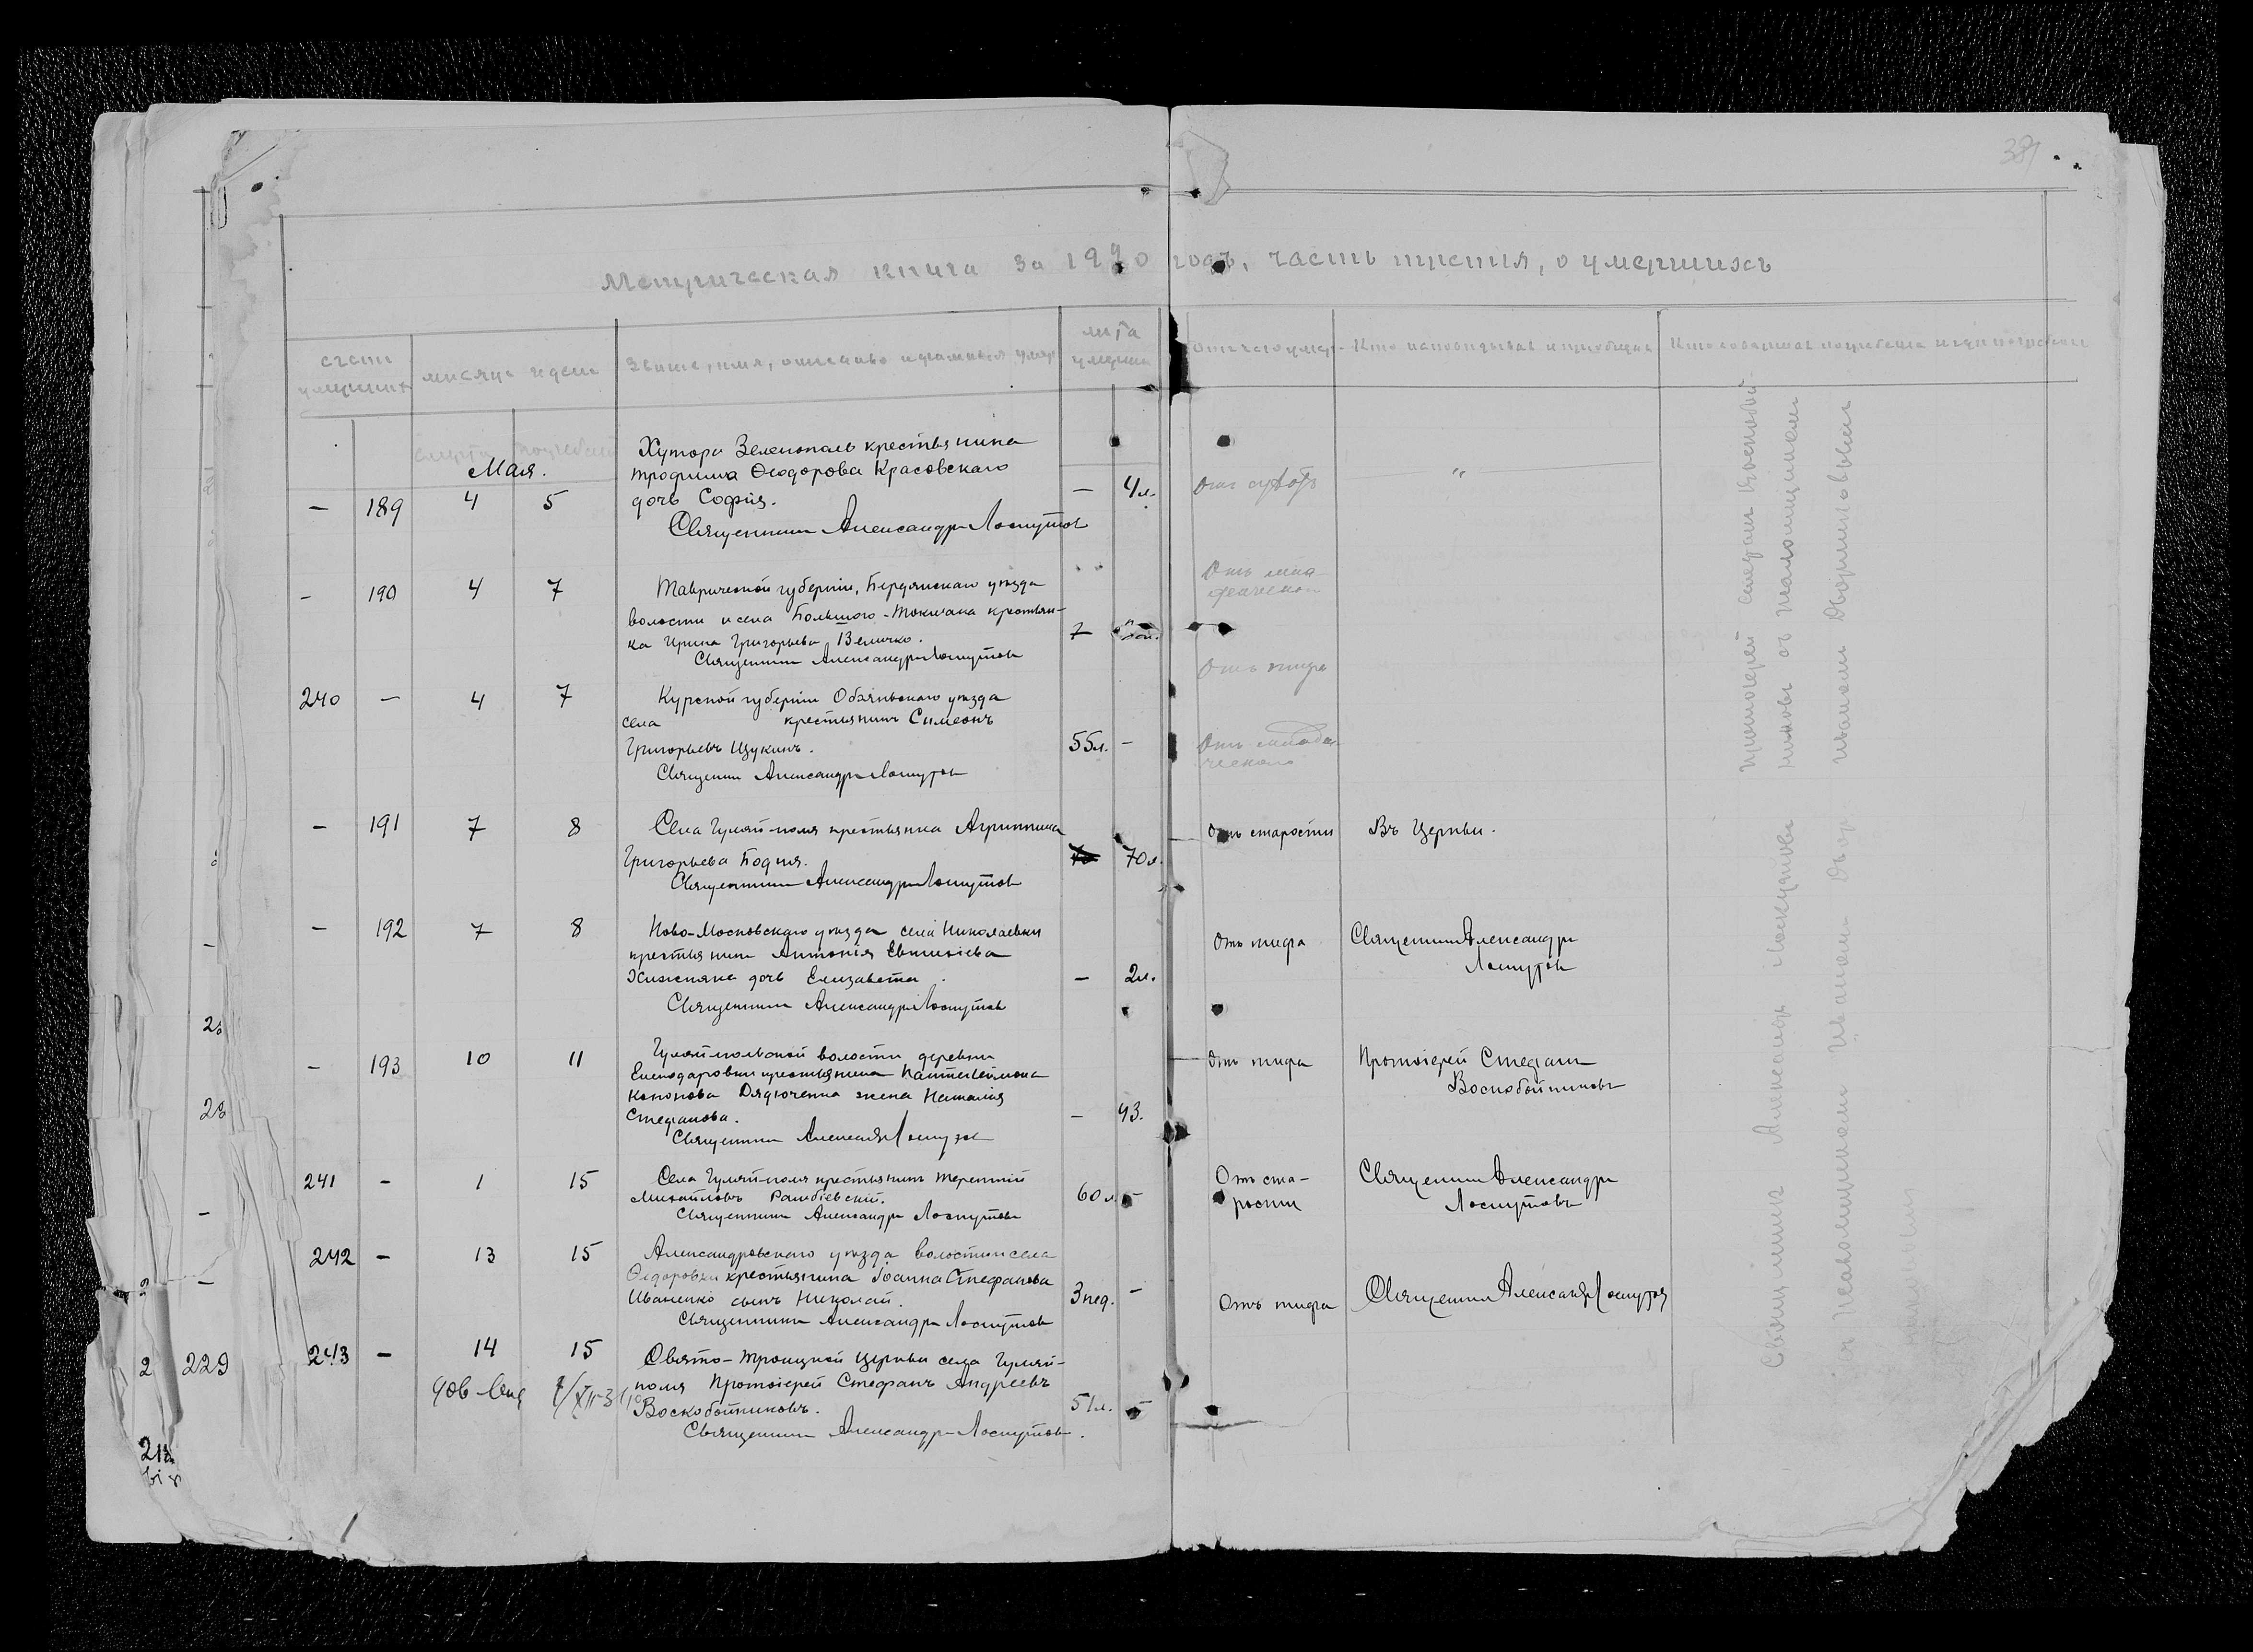 381
Метрическая книга за 1920 годъ, часть третія, о умершихъ
счетъ умершихъ
мѣсяцъ и день
Званіе, имя, отчество и фамилія умер.
лѣта умерш.
Отъ чего умер.
Кто исповѣдывалъ и пріобщалъ
Кто совершалъ погребеніе и гдѣ погребены
смерти погребенія
Мая.
— 189 4 5
Хутора Зеленополь крестьянина
Трофима Ѳеодорова Красовскаго
дочь Софія.
— 4 л.
Священникъ Александръ Лоскутовъ
- 190 4 7
Таврической губерніи, Бердянскаго уѣзда
волости и села Большого-Токмака крестьян-
ка Ирина Григорьева Величко.
Священникъ Александръ Лоскутовъ
Отъ тифа
240 — 4 7
Курской губерніи Обаяньскаго уѣзда
села крестьянинъ Симеонъ
Григорьевъ Щукинъ.
55 л. —
Священникъ Александръ Лоскутовъ
— 191 7 8
Села Гуляй-поля крестьянка Агриппина
Григорьева Бодня.
70 л.
Отъ старости
Въ Церкви.
Священникъ Александръ Лоскутовъ
— 192 7 8
Ново-Московскаго уѣзда села Николаевки
крестьянина Антонія Евтихіева
Хижняка дочь Елизавета.
— 2 л.
Отъ тифа
Священникъ Александръ
Лоскутовъ
Священникъ Александръ Лоскутовъ
— 193 10 11
Гуляйпольской волости деревни
крестьянина Пантелеймона
Кононова Дядюченка жена Наталія
Стефанова.
— 43.
Отъ тифа
Протоіерей Стефанъ
Воскобойниковъ
Священникъ Александръ Лоскутовъ
241 — 1 15
Села Гуляй-поля крестьянинъ Терентій
Михайловъ
60 л. —
Отъ ста-
рости
Священникъ Александръ
Лоскутовъ
Священникъ Александръ Лоскутовъ
242 — 13 15
Александровскаго уѣзда волости и села
Ѳедоровки крестьянина Іоанна Стефанова
Иваненко сынъ Николай.
3 нед. —
Отъ тифа
Священникъ Александръ Лоскутовъ
Священникъ Александръ Лоскутовъ
243 — 14 15
Свято-Троицкой Церкви села Гуляй-
поля Протоіерей Стефанъ Андреевъ
Воскобойниковъ.
51 л. —
Священникъ Александръ Лоскутовъ.
229
Протоіерей Стефанъ Воскобой-
никовъ съ псаломщикомъ
Иваномъ Дворниковымъ
Священникъ Александръ Лоскутовъ
съ псаломщикомъ Иваномъ